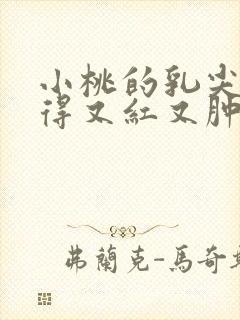 小桃的乳尖
得又紅又肿
弗蘭克-馬奇